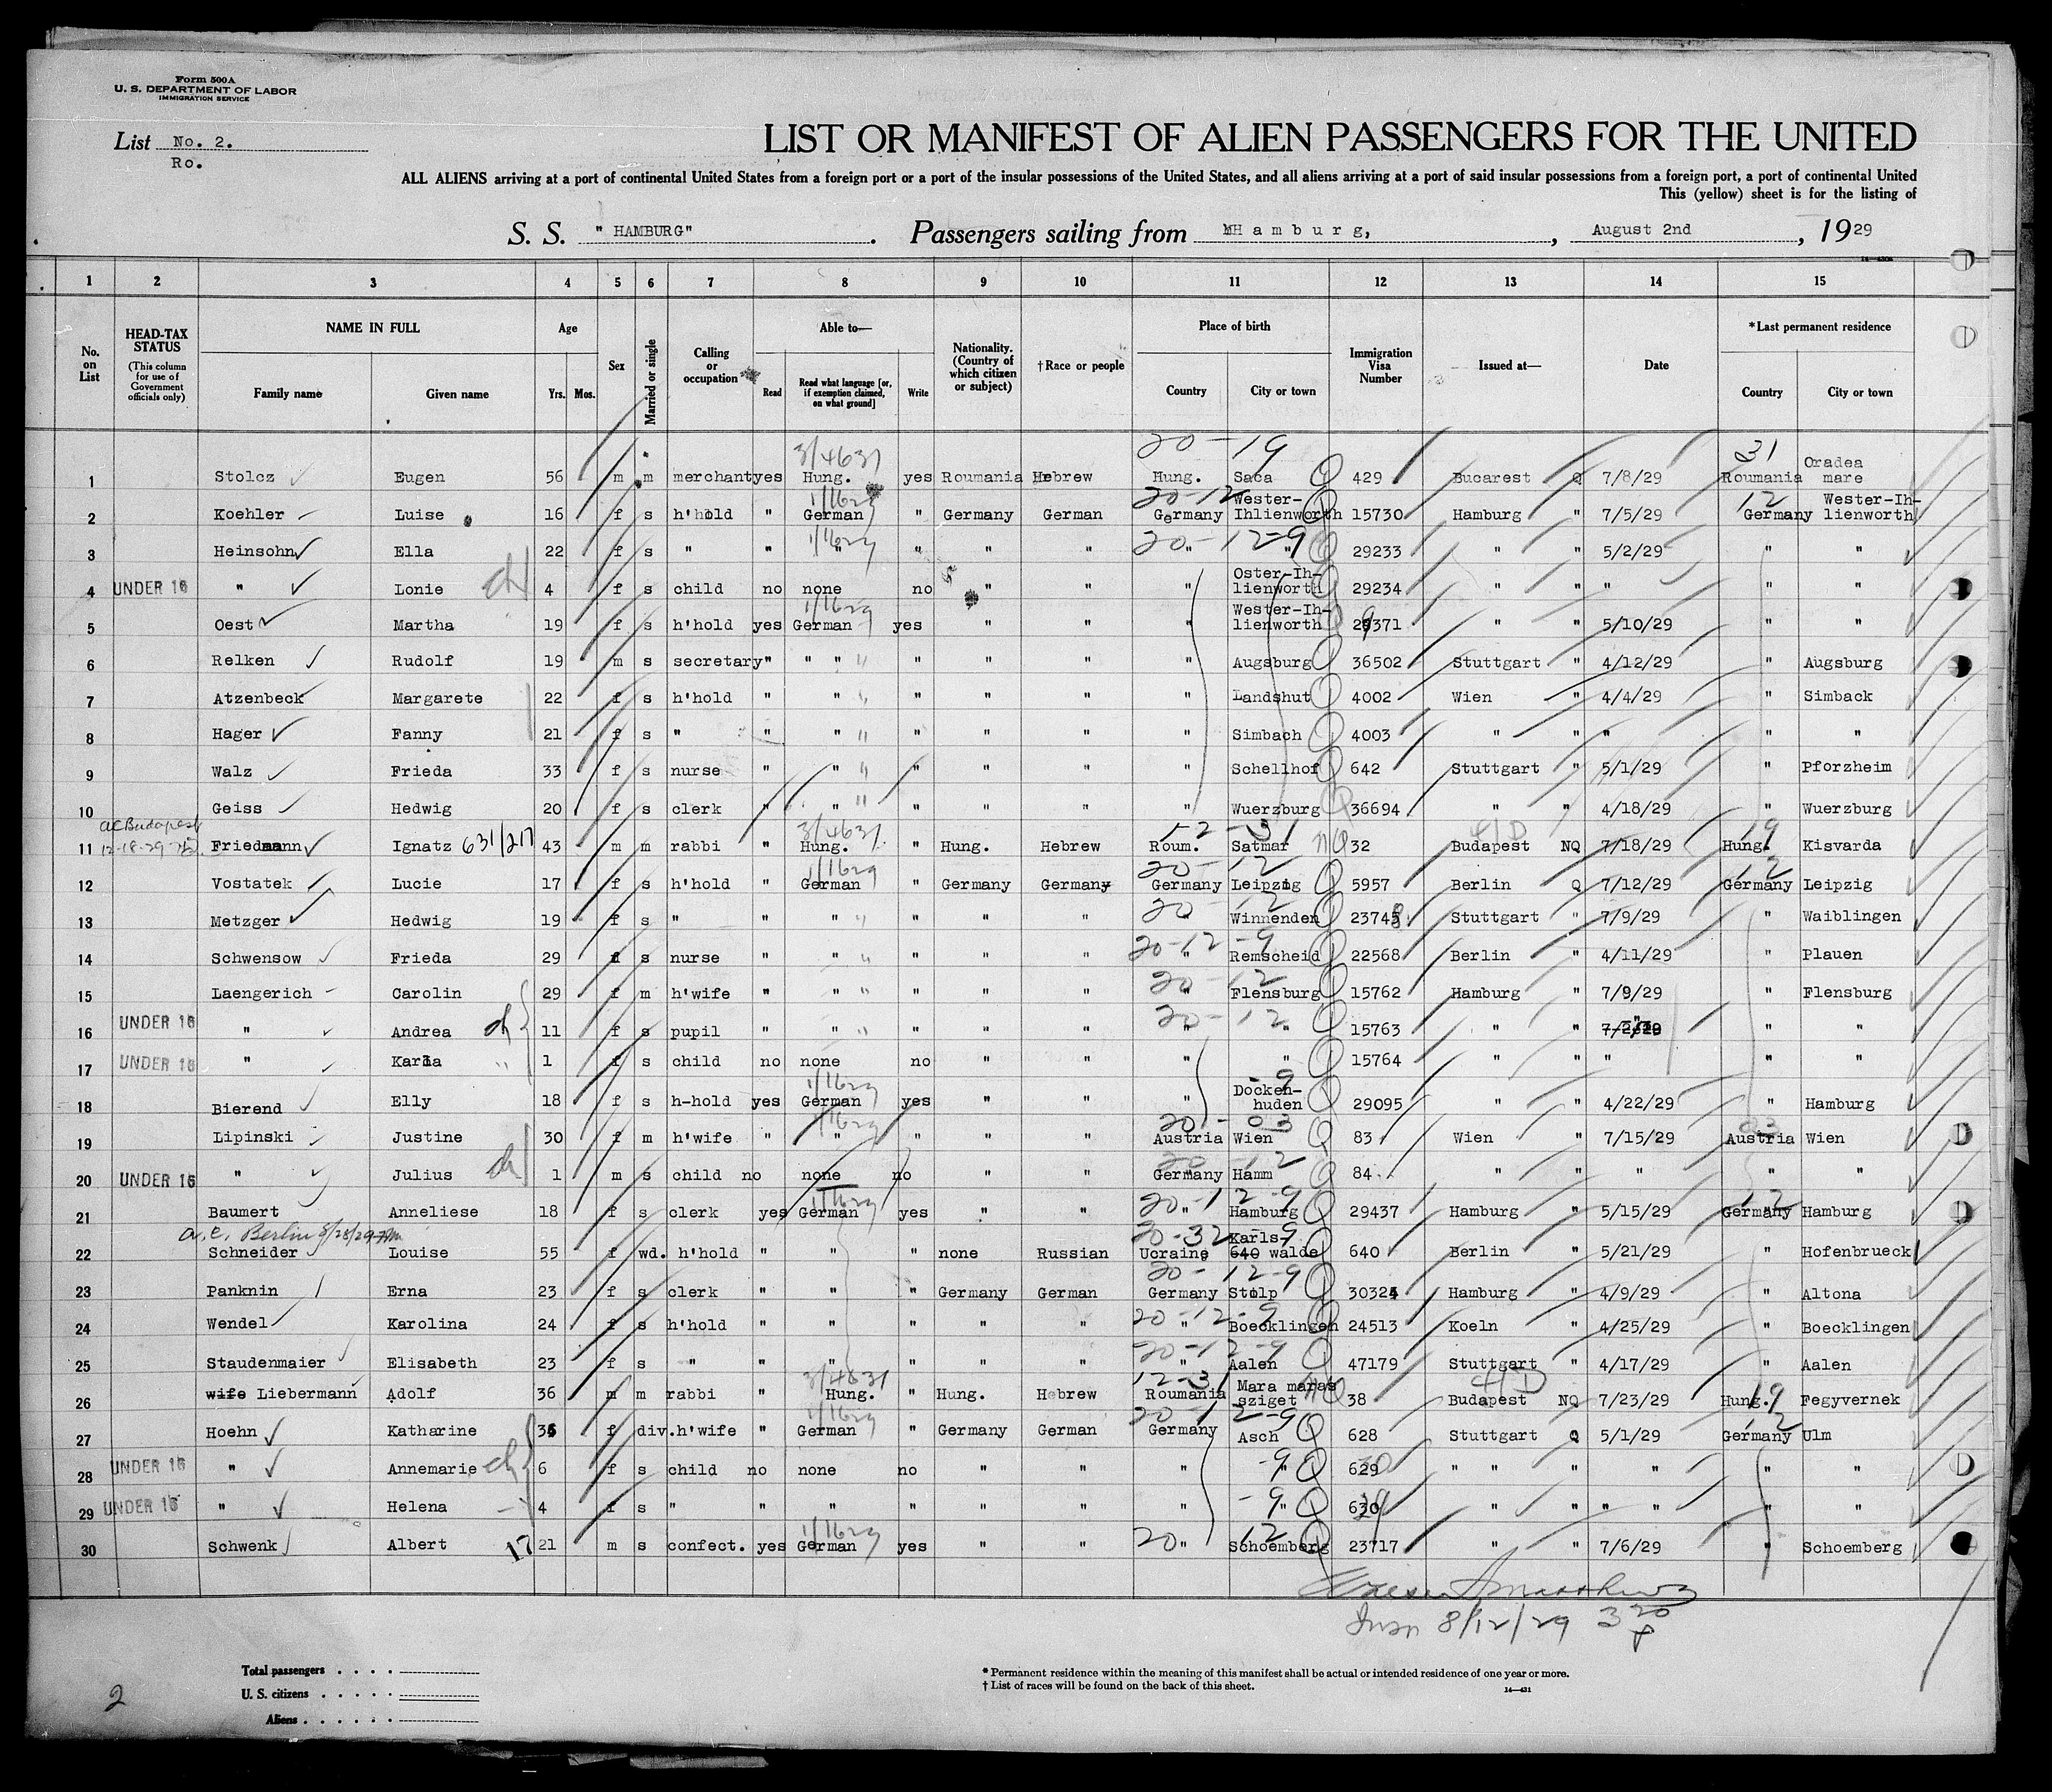 Form 500A
U. S. DEPARTMENT OF LABOR
IMMIGRATION SERVICE
List No. 2.
Ro.
LIST OR MANIFEST OF ALIEN PASSENGERS FOR THE UNITED
ALL ALIENS arriving at a port of continental United States from a foreign port or a port of the insular possessions of the United States, and all aliens arriving at a port of said insular possessions from a foreign port, a port of continental United
This (yellow) sheet is for the listing of
S. S. "HAMBURG". Passengers sailing from Hamburg, , August 2nd , 1929
1 2 3 4 5 6 7 8 9 10 11 12 13 14 15
No. on List
HEAD-TAX STATUS (This column for use of Government officials only)
NAME IN FULL Family name Given name
Age Yrs. Mos.
Sex
Married or single
Calling or occupation
Able to— Read Read what language [or, if exemption claimed, on what ground] Write
Nationality. (Country of which citizen or subject)
†Race or people
Place of birth Country City or town
Immigration Visa Number
Issued at—
Date
*Last permanent residence Country City or town
20-19 31
1 Stolcz Eugen 56 m m merchant yes 3/4631 Hung. yes Roumania Hebrew Hung. Saca 429 Bucarest Q 7/8/29 Roumania Oradea mare
2 Koehler Luise 16 f s h'hold " 1/1629 German " Germany German 20-12 Germany Wester-Ihlienworth 15730 Hamburg " 7/5/29 12 Germany Wester-Ih-lienworth
3 Heinsohn Ella 22 f s " " 1/1629 " " " " 20-12-9 " " 29233 " " 5/2/29 " "
4 UNDER 16 " Lonie ch 4 f s child no none no " " " Oster-Ih-lienworth 29234 " " " " "
5 Oest Martha 19 f s h'hold yes 1/1629 German yes " " " Wester-Ih-lienworth 29371 " " 5/10/29 " "
6 Relken Rudolf 19 m s secretary " " " " " " " Augsburg 36502 Stuttgart " 4/12/29 " Augsburg
7 Atzenbeck Margarete 22 f s h'hold " " " " " " Landshut 4002 Wien " 4/4/29 " Simback
8 Hager Fanny 21 f s " " " " " " " Simbach 4003 " " " " "
9 Walz Frieda 33 f s nurse " " " " " " Schellhof 642 Stuttgart " 5/1/29 " Pforzheim
10 Geiss Hedwig 20 f s clerk " " " " " " Wuerzburg 36694 " " 4/18/29 " Wuerzburg
ac Budapest
12-18-29
11 Friedmann Ignatz 631/217 43 m m rabbi " 3/4631 Hung. " Hung. Hebrew 12-31 Roum. Satmar NQ 32 4/D Budapest NQ 7/18/29 19 Hung. Kisvarda
12 Vostatek Lucie 17 f s h'hold " 1/1629 German " Germany Germany 20-12 Germany Leipzig 5957 Berlin Q 7/12/29 12 Germany Leipzig
13 Metzger Hedwig 19 f s " " " " " " 20-12 " Winnenden 23748 Stuttgart " 7/9/29 " Waiblingen
14 Schwensow Frieda 29 f s nurse " " " " " 20-12-9 " Remscheid 22568 Berlin " 4/11/29 " Plauen
15 Laengerich Carolin 29 f m h'wife " " " " " 20-12 " Flensburg 15762 Hamburg " 7/9/29 " Flensburg
16 UNDER 16 " Andrea ch 11 f s pupil " " " " " 20-12 " " 15763 " " 7/2/29 " "
17 UNDER 16 " Karla " 1 f s child no none no " " " " 15764 " " " " "
18 Bierend Elly 18 f s h-hold yes 1/1629 German yes " " " Docken-huden 9 29095 " " 4/22/29 " Hamburg
19 Lipinski Justine 30 f m h'wife " 1/1629 " " " " 20-03 Austria Wien 83 Wien " 7/15/29 03 Austria Wien
20 UNDER 16 " Julius ch 1 m s child no none no " " 20-12 Germany Hamm 84 " " " " "
21 Baumert Anneliese 18 f s clerk yes 1/1629 German yes " " 20-12-9 " Hamburg 29437 Hamburg " 5/15/29 12 Germany Hamburg
a.c. Berlin 8/28/29
22 Schneider Louise 55 f wd. h'hold " " " none Russian 20-32-9 Ucraine Karls-640 walde 640 Berlin " 5/21/29 " Hofenbrueck
23 Panknin Erna 23 f s clerk " " " Germany German 20-12-9 Germany Stolp 30324 Hamburg " 4/9/29 " Altona
24 Wendel Karolina 24 f s h'hold " " " " " 20-12-9 " Boecklingen 24513 Koeln " 4/25/29 " Boecklingen
25 Staudenmaier Elisabeth 23 f s " " " " " " 20-12-9 " Aalen 47179 Stuttgart " 4/17/29 " Aalen
26 wife Liebermann Adolf 36 m m rabbi " 3/4631 Hung. " Hung. Hebrew 12-31 Roumania Mara maros sziget NQ 38 4/D Budapest NQ 7/23/29 19 Hung. Fegyvernek
27 Hoehn Katharine 36 f div. h'wife " 1/1629 German " Germany German 20-12-9 Germany Asch 628 Stuttgart Q 5/1/29 12 Germany Ulm
28 UNDER 16 " Annemarie ch 6 f s child no none no " " " -9 " 629 30 " " " " " "
29 UNDER 16 " Helena 4 f s " " " " " " " -9 " 630 29 " " " " " "
30 Schwenk Albert 17 21 m s confect. yes 1/1629 German yes " " 20 12 " Schoemberg 23717 " " 7/6/29 " Schoemberg
Matthews
8/12/29 3 20 P
Total passengers . . . .
U. S. citizens . . . . .
Aliens . . . . . .
* Permanent residence within the meaning of this manifest shall be actual or intended residence of one year or more.
† List of races will be found on the back of this sheet.
14—431
2